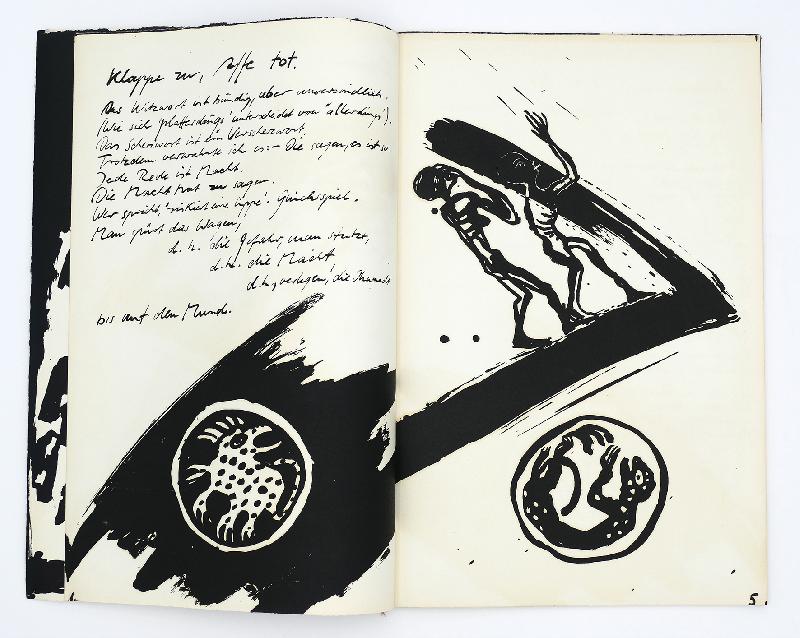 Klappe zu, Affe tot.
Das Witzwort ist bündig, aber unverbindlich.
Wie sich 'platterdings' unterscheidet von 'allerdings').
Das Scherzwort ist ein Verscherzwort.
Trotzdem verwahrte ich es – Die sagen, es ist so
Jede Rede ist Macht.
Die Macht hat zu sagen.
Wer spricht, 'riskiert eine Lippe'. Glücksspiel.
Man spürt das Wagen,
d. h. die Gefahr, man stutzt,
d. h. die Macht
d. h., verlegen, die
bis auf den Mund.
5